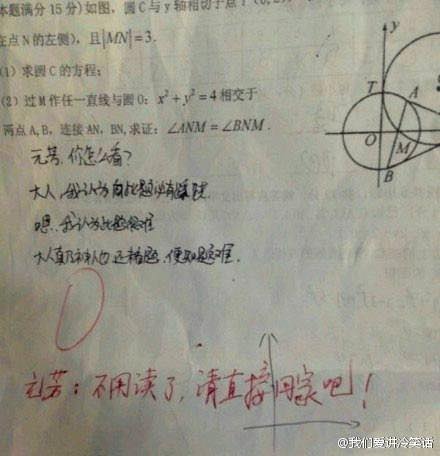 本题满分 15 分)如图，圆 C 与 y 轴相切于点 T
在点 N 的左侧)，且|MN|=3.
(1) 求圆 C 的方程;
(2) 过 M 作任一直线与圆 O: x²+y²=4 相交于
两点 A,B，连接 AN，BN, 求证：∠ANM=∠BNM.
y
T
A
O
M
B
元芳，你怎么看？
大人，我认为此题
嗯，我认为此题很难
大人真乃神人也，还未看题，便知题难.
0
元芳：不用读了，请直接回家吧！
@我们爱讲冷笑话